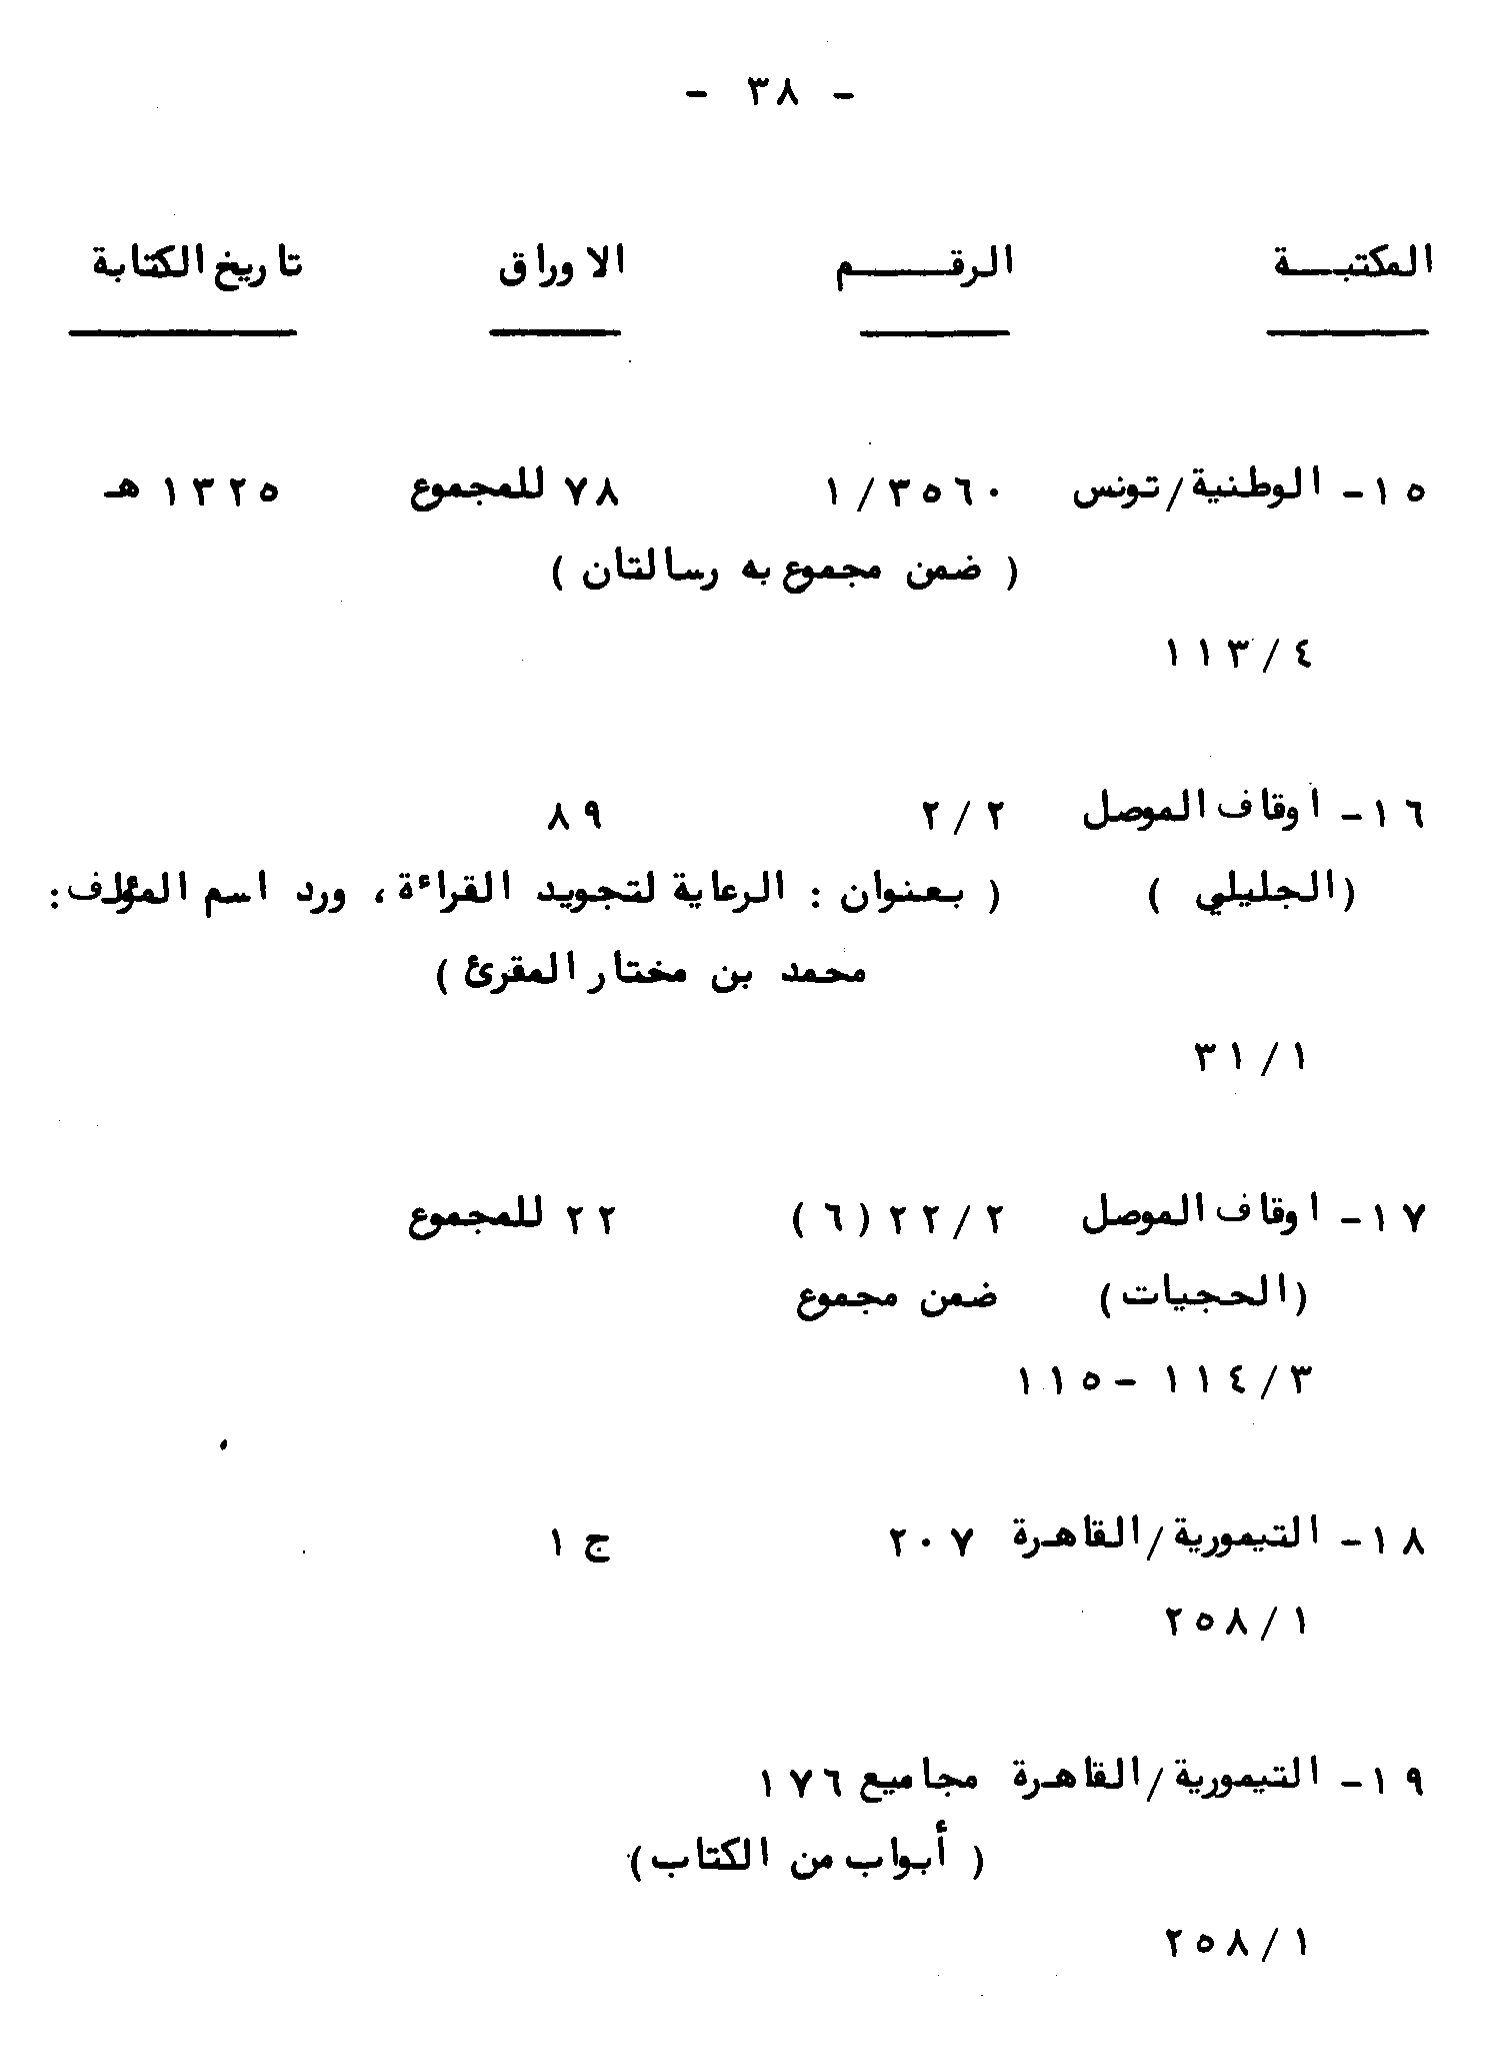 - ٣٨ -
المكتبـــة الرقـــــم الاوراق تاريخ الكتابة
١٥- الوطنية/تونس ١/٣٥٦٠ ٧٨ للمجموع ١٣٢٥ هـ
( ضمن مجموع به رسالتان )
١١٣/٤
١٦- اوقاف الموصل ٢/٢ ٨٩
(الجليلي ) ( بعنوان : الرعاية لتجويد القراءة ، ورد اسم المؤلف :
محمد بن مختار المقرئ )
٣١/١
١٧- اوقاف الموصل ٢٢/٢ (٦) ٢٢ للمجموع
(الحجيات) ضمن مجموع
١١٤/٣ - ١١٥
١٨- التيمورية/القاهرة ٢٠٧ ج ١
٢٥٨/١
١٩- التيمورية/القاهرة مجاميع ١٧٦
( أبواب من الكتاب )
٢٥٨/١